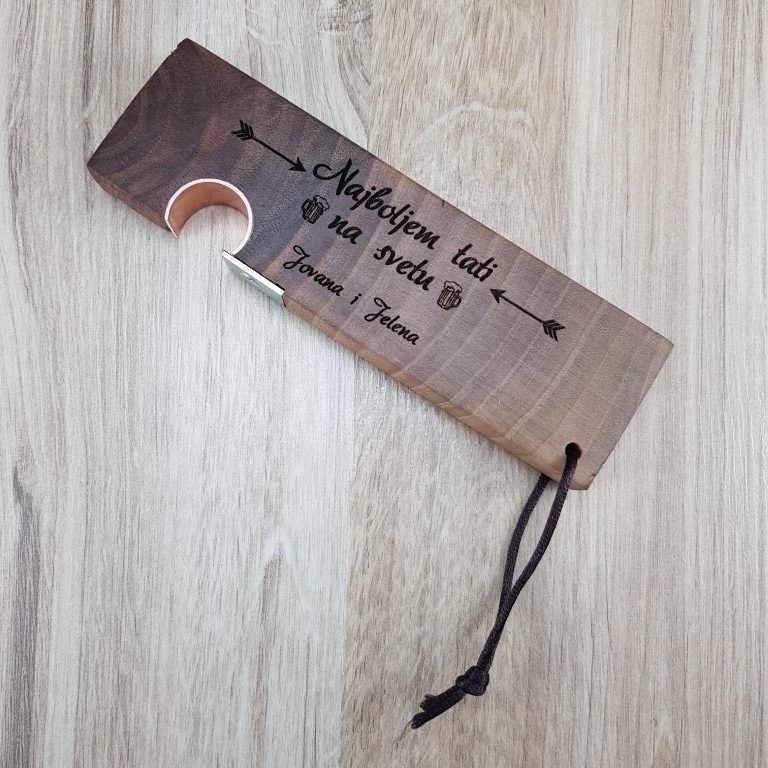 Najboljem tati
na svetu
Jovana i Jelena